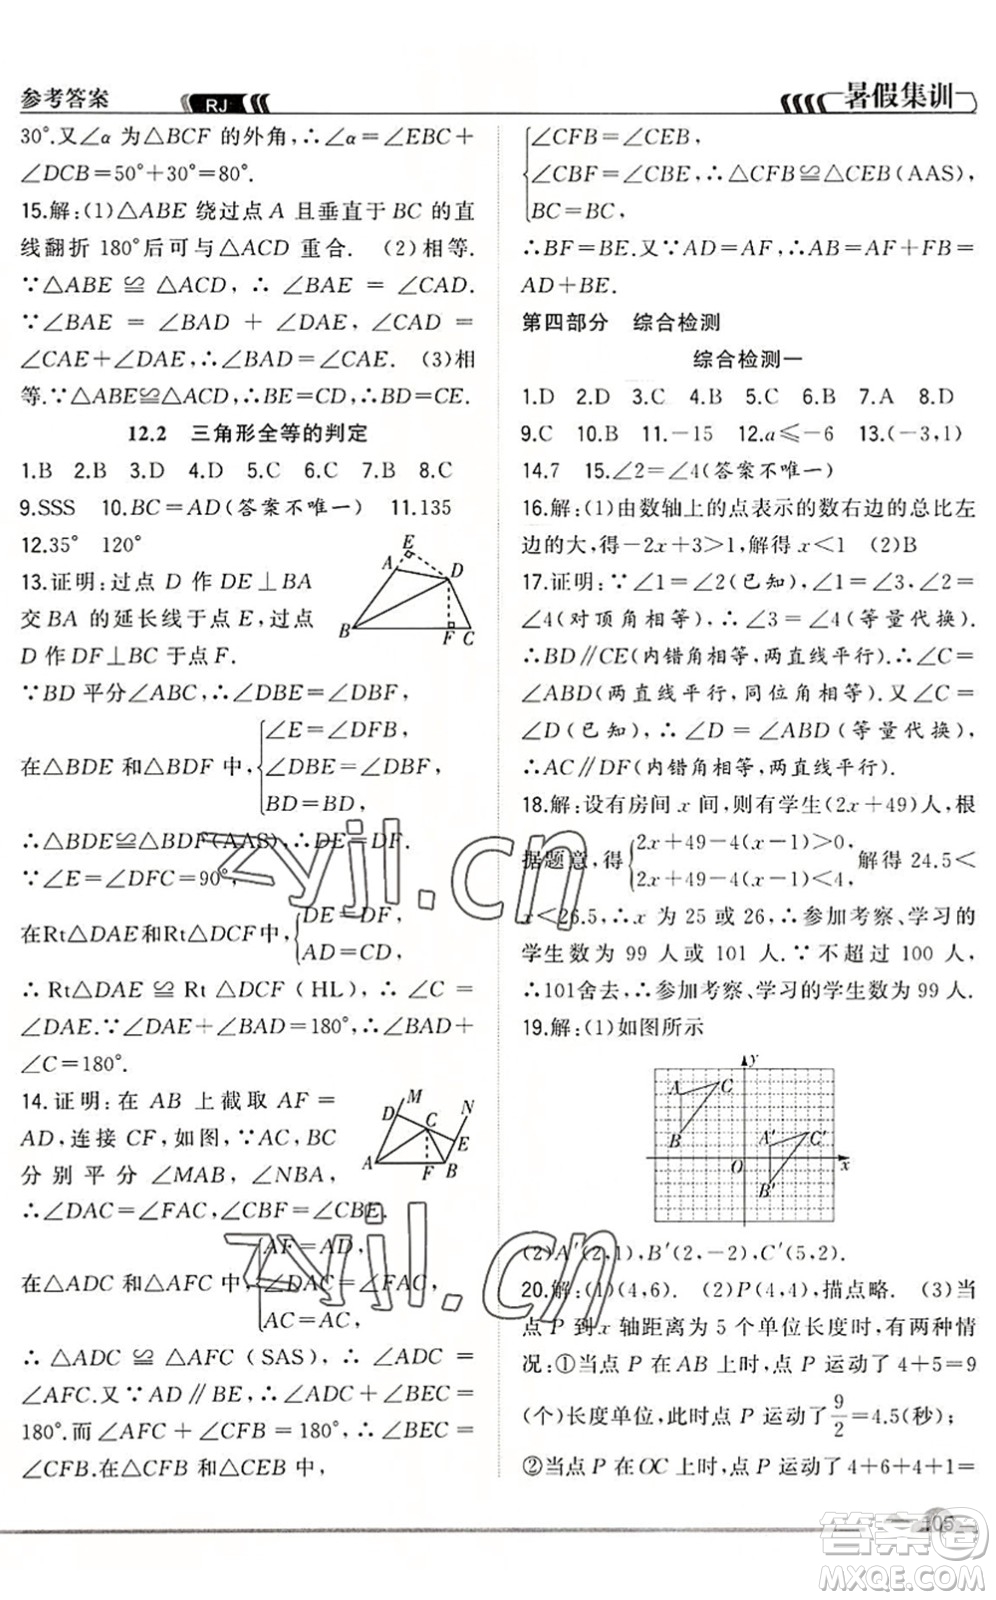 参考答案
RJ
暑假集训
30°.又∠α 为△BCF 的外角,∴∠α=∠EBC+
∠DCB=50°+30°=80°.
15.解:(1)△ABE 绕过点 A 且垂直于 BC 的直
线翻折 180°后可与△ACD 重合. (2)相等.
∵△ABE≌△ACD,∴∠BAE=∠CAD.
∵∠BAE=∠BAD+∠DAE,∠CAD=
∠CAE+∠DAE,∴∠BAD=∠CAE. (3)相
等.∵△ABE≌△ACD,∴BE=CD,∴BD=CE.
12.2 三角形全等的判定
1.B 2.B 3.D 4.D 5.C 6.C 7.B 8.C
9.SSS 10.BC=AD(答案不唯一) 11.135
12.35° 120°
13.证明:过点 D 作 DE⊥BA
交 BA 的延长线于点 E,过点
D 作 DF⊥BC 于点 F.
E
A
D
B
F
C
∵BD 平分∠ABC,∴∠DBE=∠DBF,
在△BDE 和△BDF 中,
∠E=∠DFB,
∠DBE=∠DBF,
BD=BD,
∴△BDE≌△BDF(AAS),∴DE=DF.
∵∠E=∠DFC=90°,
在Rt△DAE和Rt△DCF中,
DE=DF,
AD=CD,
∴Rt△DAE≌Rt△DCF(HL),∴∠C=
∠DAE.∵∠DAE+∠BAD=180°,∴∠BAD+
∠C=180°.
14.证明:在 AB 上截取 AF=
AD,连接 CF,如图,∵AC,BC
分别平分∠MAB,∠NBA,
M
N
D
C
E
A
F
B
∴∠DAC=∠FAC,∠CBF=∠CBE.
在△ADC 和△AFC 中,
AF=AD,
∠DAC=∠FAC,
AC=AC,
∴△ADC≌△AFC(SAS),∴∠ADC=
∠AFC.又∵AD∥BE,∴∠ADC+∠BEC=
180°.而∠AFC+∠CFB=180°,∴∠BEC=
∠CFB.在△CFB 和△CEB 中,
∠CFB=∠CEB,
∠CBF=∠CBE,∴△CFB≌△CEB(AAS),
BC=BC,
∴BF=BE.又∵AD=AF,∴AB=AF+FB=
AD+BE.
第四部分 综合检测
综合检测一
1.D 2.D 3.C 4.B 5.C 6.B 7.A 8.D
9.C 10.B 11.-15 12.a≤-6 13.(-3,1)
14.7 15.∠2=∠4(答案不唯一)
16.解:(1)由数轴上的点表示的数右边的总比左
边的大,得-2x+3>1,解得 x<1 (2)B
17.证明:∵∠1=∠2(已知),∠1=∠3,∠2=
∠4(对顶角相等),∴∠3=∠4(等量代换).
∴BD∥CE(内错角相等,两直线平行).∴∠C=
∠ABD(两直线平行,同位角相等).又∠C=
∠D(已知),∴∠D=∠ABD(等量代换),
∴AC∥DF(内错角相等,两直线平行).
18.解:设有房间 x 间,则有学生(2x+49)人,根
据题意,得
2x+49-4(x-1)>0,
2x+49-4(x-1)<4,
解得 24.5<
x<26.5,∴x 为 25 或 26,∴参加考察、学习的
学生数为 99 人或 101 人.∵不超过 100 人,
∴101舍去,∴参加考察、学习的学生数为 99 人.
19.解:(1)如图所示
y
A
C
B
A′
C′
O
B′
x
(2)A′(2,1),B′(2,-2),C′(5,2).
20.解:(1)(4,6). (2)P(4,4),描点略. (3)当
点 P 到 x 轴距离为 5 个单位长度时,有两种情
况:①当点 P 在 AB 上时,点 P 运动了 4+5=9
(个)长度单位,此时点 P 运动了9/2=4.5(秒);
②当点 P 在 OC 上时,点 P 运动了 4+6+4+1=
105
zyjl.cn
zyjl.cn
答案圈
MXQE.COM